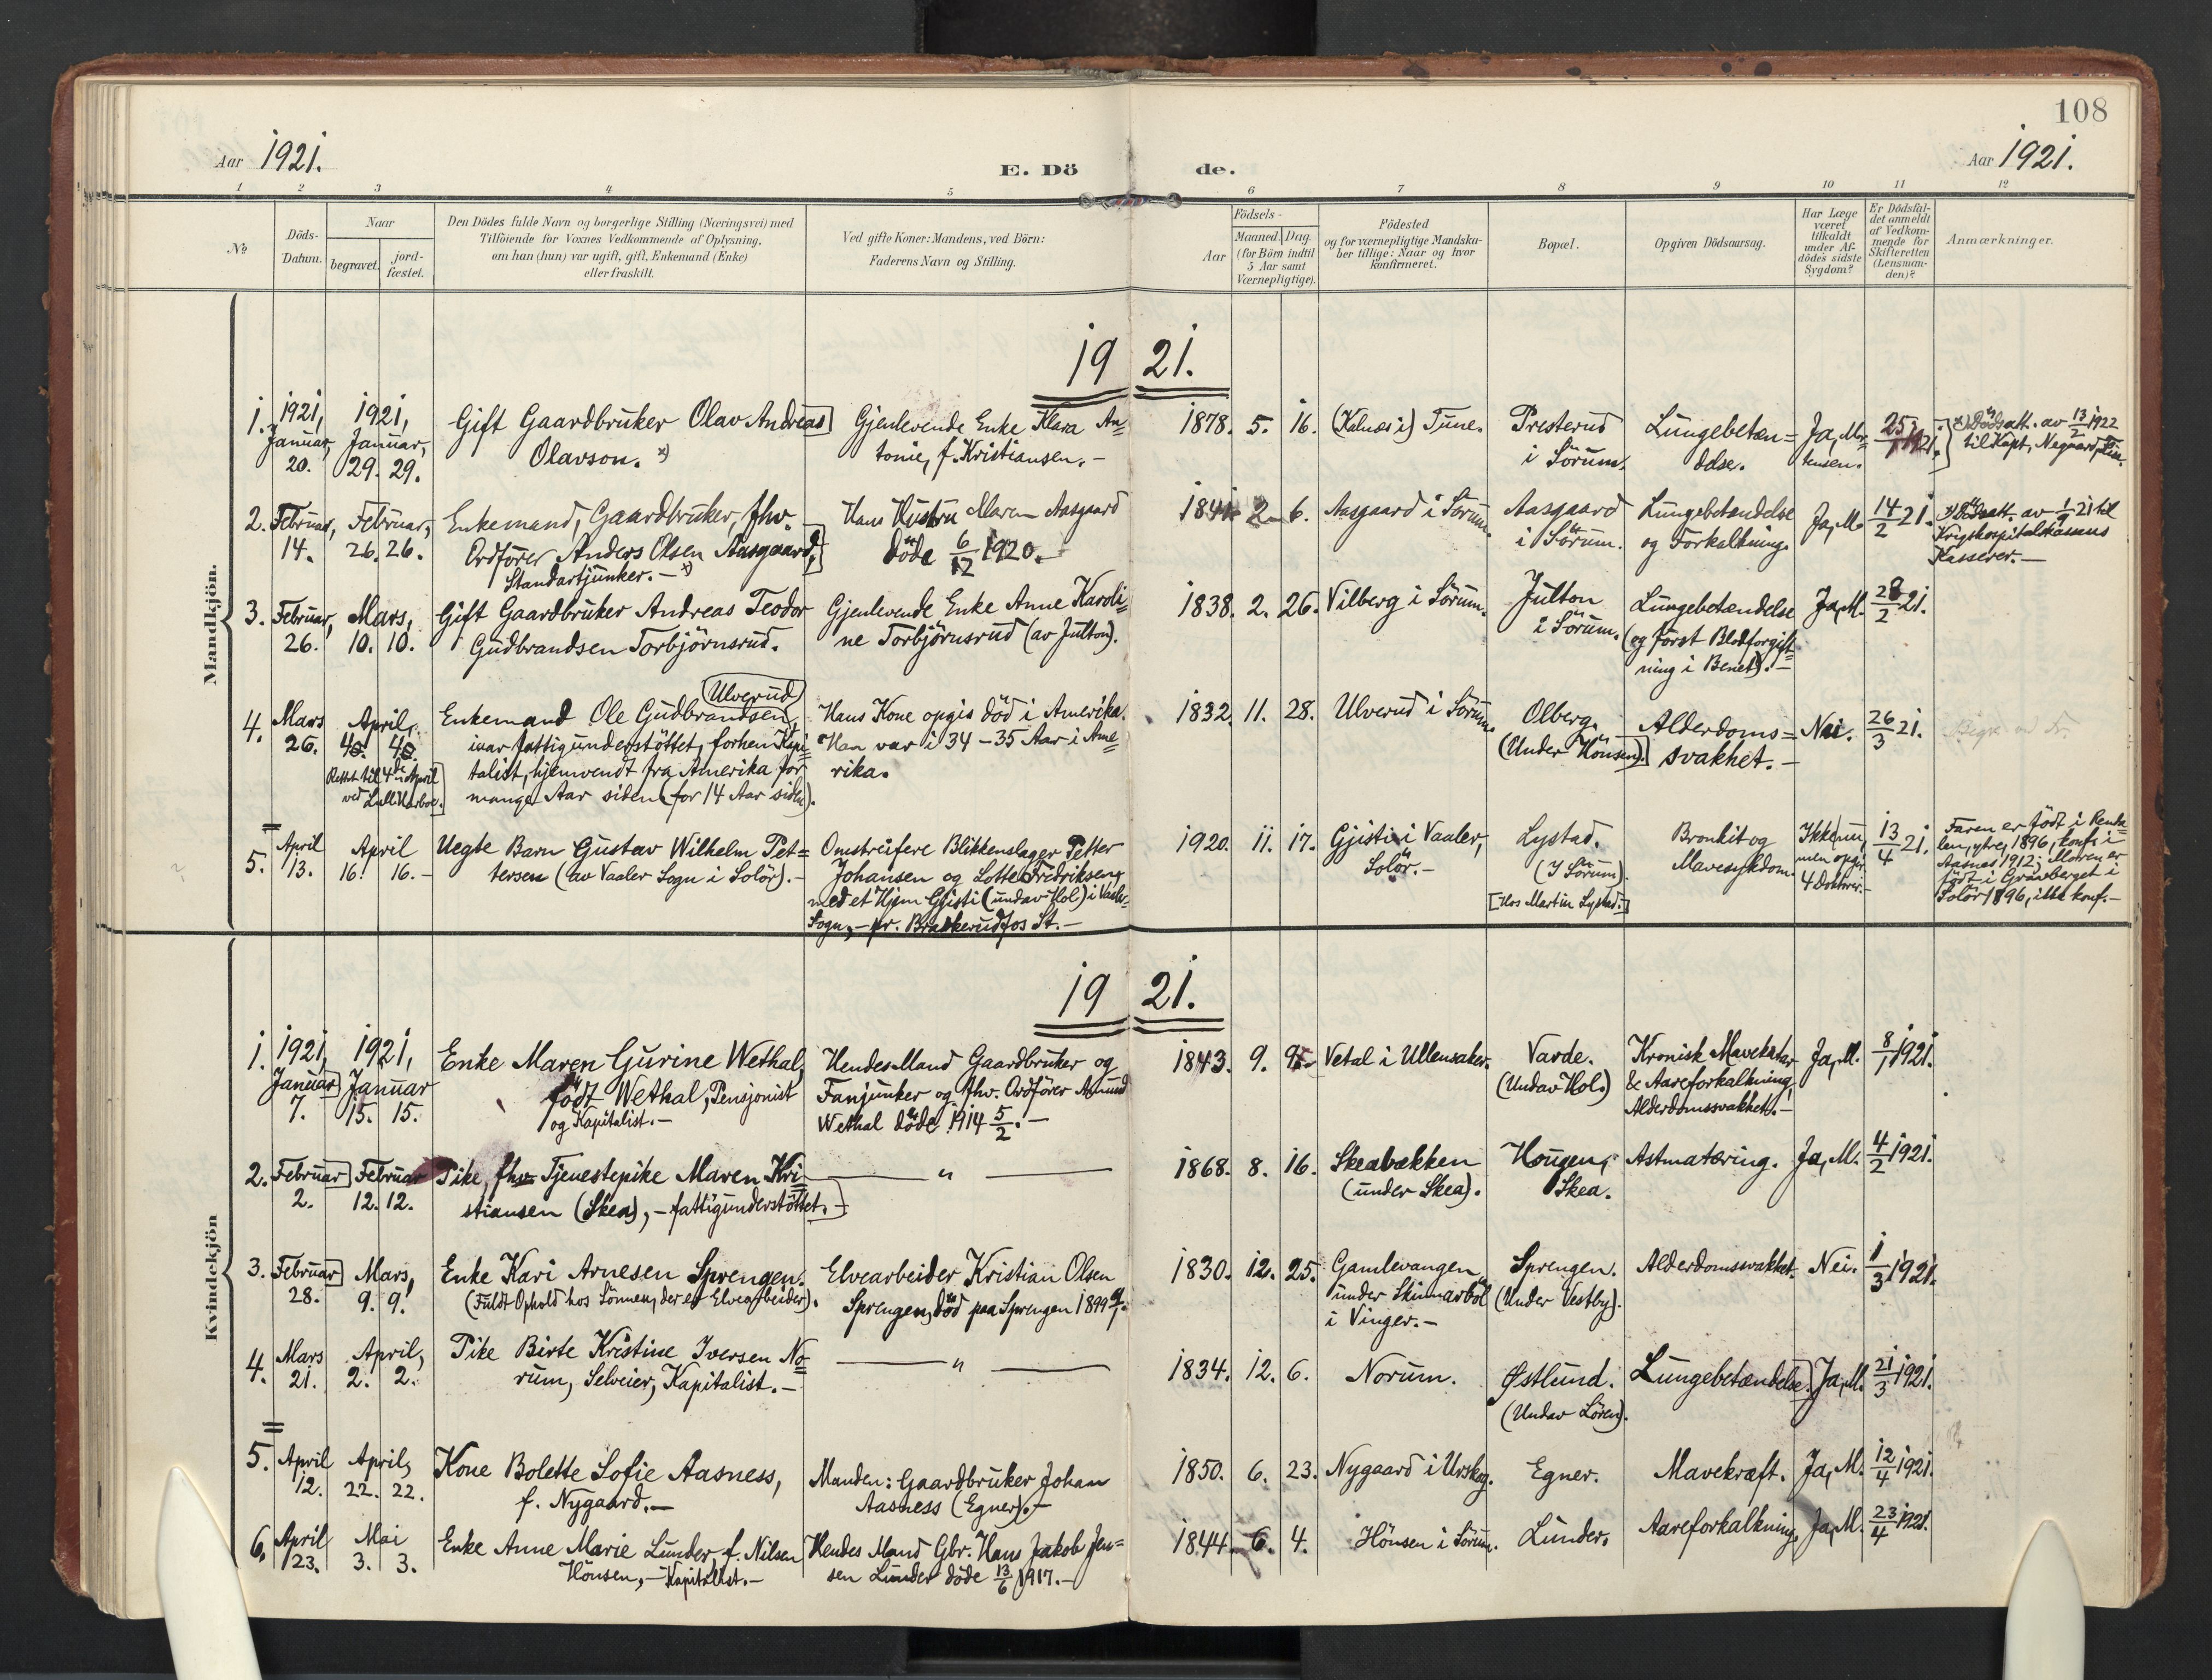 108
Aar 1921.
E. Dö de.
Aar 1921.
1 2 3 4 5 6 7 8 9 10 11 12
No
Döds-
Datum.
Naar
begravet.
jord-
fæstet.
Den Dödes fulde Navn og borgerlige Stilling (Næringsvei) med
Tilföiende for Voxnes Vedkommende af Oplysning,
om han (hun) var ugift, gift, Enkemand (Enke)
eller fraskilt.
Ved gifte Koner: Mandens, ved Börn:
Faderens Navn og Stilling.
Födsels-
Aar
Maaned. Dag.
(for Börn indtil
5 Aar samt
Værnepligtige).
Födested
og for værnepligtige Mandska-
ber tillige: Naar og hvor
konfirmeret.
Bopæl.
Opgiven Dödsaarsag.
Har Læge
været
tilkaldt
under Af-
dödes sidste
Sygdom?
Er Dödsfal-
det anmeldt
af Vedkom-
mende for
Skifteretten
(Lensman-
den)?
Anmærkninger.
Mandkjön.
1921.
1.
1921,
Januar,
20.
1921,
Januar,
29. 29.
Gift Gaardbruker Olav Andreas
Olavson. x)
Gjenlevende Enke Klara An=
tonie, f. Kristiansen. -
1878. 5. 16.
(Kalnæs i) Tune.
Presterud
i Sörum.
Lungebetæn=
delse.
Ja, Mor=
tensen.
25/1 1921.
x) Dödsatt. av 13/2 1922
til Kapt.
2.
Februar,
14.
Februar,
26. 26.
Enkemand, Gaardbruker, fhv.
Ordförer Anders Olsen Aasgaard,
Standartjunker. - x)
Hans Hustru Maren Aasgaard
döde 6/12 1920. -
1841 2. 6.
Aasgaard i Sörum.
Aasgaard
i Sörum.
Lungebetændelse
og Forkalkning.
Ja, M.
14/2 21.
x) Dödsatt. av 1/9 21 til
Krigshospitalskassens
Kasserer. -
3.
Februar,
26.
Mars,
10. 10.
Gift Gaardbruker Andreas Teodor
Gudbrandsen Torbjörnsrud.
Gjenlevende Enke Anne Karoli=
ne Torbjörnsrud (av Julton).
1838. 2. 26.
Vilberg i Sörum.
Julton
i Sörum.
Lungebetændelse
(og först Blodforgift=
ning i Benet). -
Ja, M.
28/2 21.
4.
Mars
26.
April,
Rettet til 4de April
ved
Ulverud
Enkemand Ole Gudbrandsen,
ivar fattigunderstöttet, forhen Kapi=
talist, hjemvendt fra Amerika for
mange Aar siden (for 14 Aar siden).
Hans Kone opgis död i Amerika.
Han var i 34 - 35 Aar i Ame=
rika.
1832. 11. 28.
Ulverud i Sörum.
Olberg.
(Under Hönsen).
Alderdoms=
svakhet. -
Nei.
26/3 21.
5.
April
13.
April
16. 16. -
Uegte Barn Gustav Wilhelm Pet=
tersen (av Vaaler Sogn i Solör). -
Omstreifere Blikkenslager Petter
Johansen og Lotte Fredriksens
med et Hjem Gjisti (undav Hol) i Vaaler
Sogn, - pr. Braskerudfos St. -
1920. 11. 17.
Gjisti i Vaaler,
Solör. -
Lystad.
(I Sörum).
[Hos Martin Lystad.]
Bronkit og
Mavesykdom.
Ikke nu,
men opgir
4 Doktorer. -
13/4 21.
Faren er födt i Rendа=
len, ytre, 1896, konf. i
Aasnes 1912; Moren er
födt i Gravberget i
Solör 1896, ikke konf. -
Kvindekjön
1921.
1.
1921,
Januar
7.
1921,
Januar
15. 15.
Enke Maren Gurine Wethal,
födt Wethal, Pensjonist
og Kapitalist. -
Hendes Mand Gaardbruker og
Fanjunker og fhv. Ordförer Amund
Wethal döde 1914 5/2. -
1843. 9.
Vetal i Ullensaker.
Varde.
(Undav Hol.)
Kronisk Mavekatar
& Aareforkalkning,
Alderdomssvakhet. -
Ja, M.
8/1 1921.
2.
Februar
2.
Februar
12. 12.
Pike, fhv. Tjenestepike Maren Kri=
stiansen (Skea), - fattigunderstöttet. -
"
1868. 8. 16.
Skeabækken
(under Skea).
Hougen,
Skea.
Astmatæring.
Ja, M.
4/2 1921.
3.
Februar
28.
Mars,
9. 9.
Enke Kari Arnesen Sprengen.
(Fuldt Ophold hos Sönnen, der er Elvearbeider).
Elvearbeider Kristian Olsen
Sprengen, död paa Sprengen 1899
1830. 12. 25.
Gamlevangen
under Skinnarböl
i Vinger. -
Sprengen.
(Under Vestby).
Alderdomssvakhet.
Nei.
1/3 1921.
4.
Mars
21.
April,
2. 2.
Pike Birte Kristine Iversen No=
rum, Selveier, Kapitalist. -
"
1834. 12. 6.
Norum.
Østlund.
(Undav Lören).
Lungebetændelse.
Ja, M.
21/3 1921.
5.
April
12.
April,
22. 22.
Kone Bolette Sofie Aasness,
f. Nygaard. -
Manden: Gaardbruker Johan
Aasness (Egner). -
1850. 6. 23.
Nygaard i Urskog.
Egner.
Mavekræft.
Ja, M.
12/4 1921.
6.
April
23.
Mai
3. 3.
Enke Anne Marie Lunder, f. Nilsen
Hönsen, - Kapitalist. -
Hendes Mand Gbr. Hans Jakob Jen=
sen Lunder döde 13/6 1917. -
1844. 6. 4.
Hönsen i Sörum.
Lunder.
Aareforkalkning.
Ja, M.
23/4 1921.